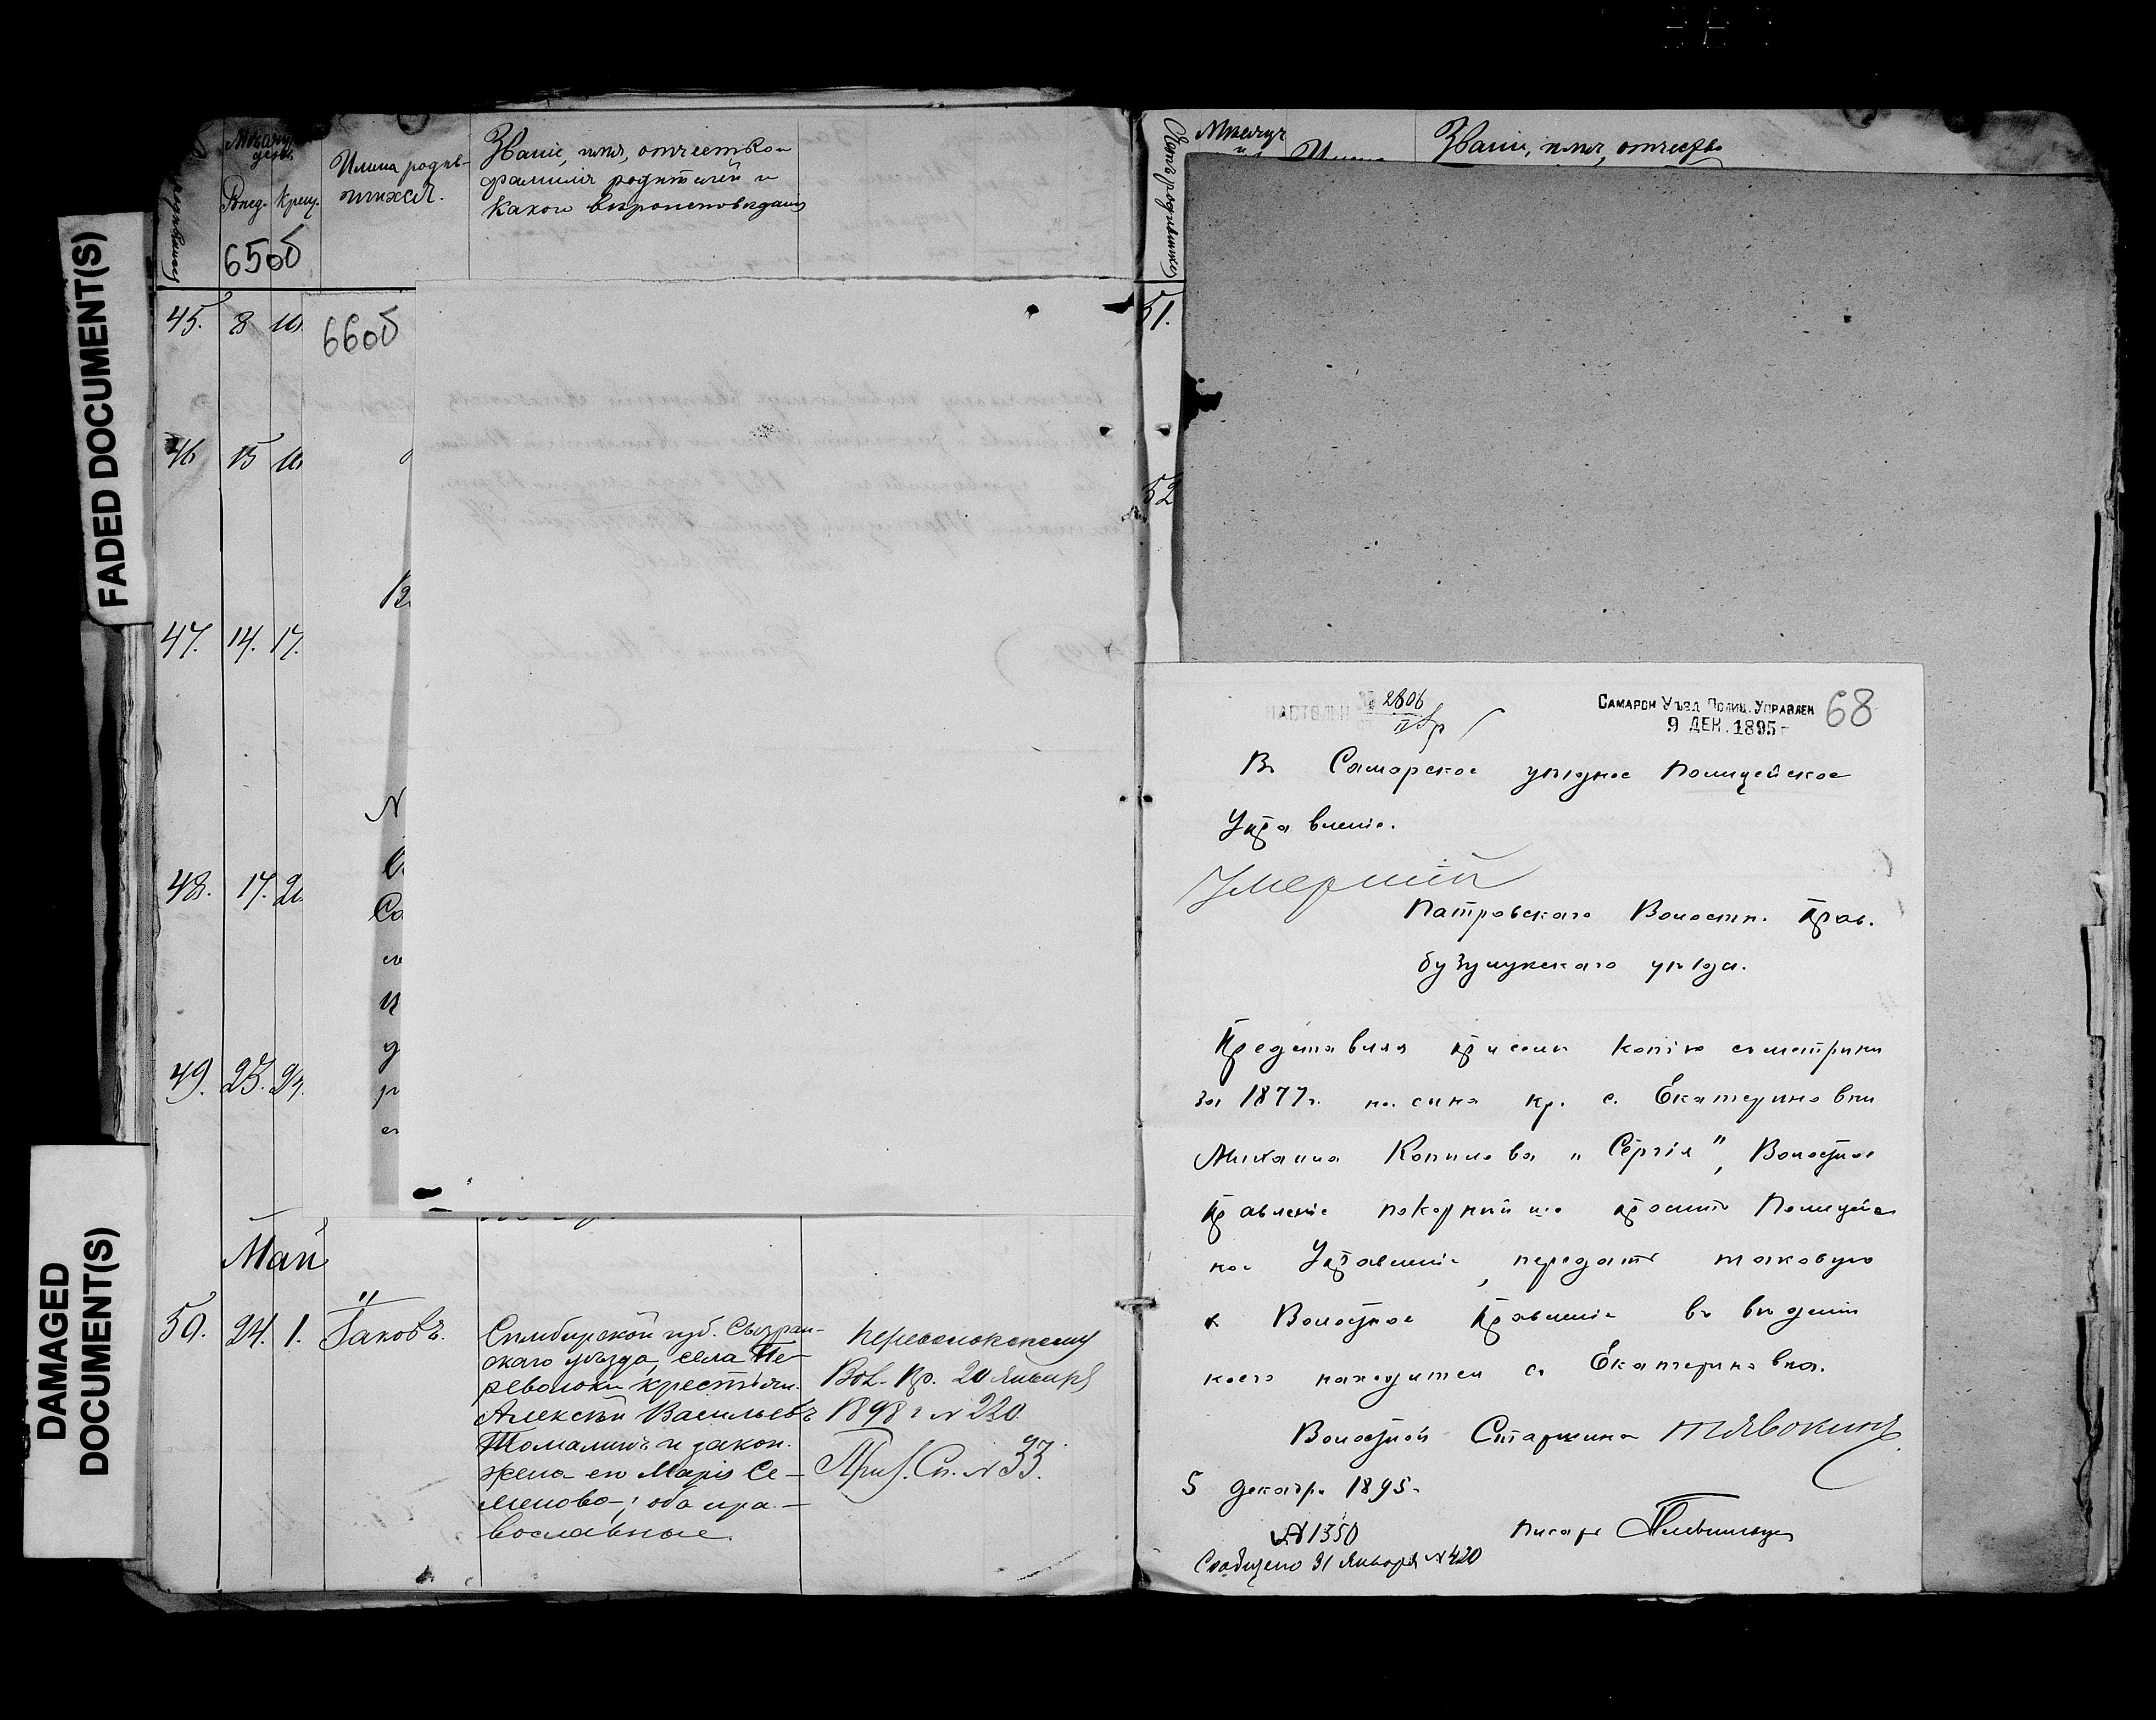 FADED DOCUMENT(S)
DAMAGED
DOCUMENT(S)
Рожд. Крещ.
Имена родив-
шихся.
Званіе, имя, отчество и
фамилія родителей и
какого вѣроисповѣданія
65об
45. 8 10.
66об
46 15 16
47. 14. 17.
48. 17. 20
49. 23. 24.
Май
50. 24. 1. Іаковъ.
Симбирской губ. Сызран-
скаго уѣзда, села Пе-
револоки крестьян.
Алексѣй Васильевъ
Томалинъ и закон.
жена его Марія Се-
менова; оба пра-
вославные
Переволокскому
Вол. Пр. 20 Января
1898 г № 220.
Приз. Сп. № 33.
Званіе, имя, отчество
51.
52
НАСТОЛЬН № 2806
САМАРСК УѢЗД. ПОЛИЦ. УПРАВЛЕН 68
9 ДЕК. 1895
Въ Самарское уѣздное Полицейское
Управленіе.
Умершій
Патровскаго Волостн. Прав.
бузулукскаго уѣзда.
Представляя при семъ копію съ метрики
за 1877 г. на сына кр. с. Екатериновки
Михаила Копылова „Сергія", Волостное
Правленіе покорнѣйше проситъ Полицейс
кое Управленіе, передать таковую
в Волостное Правленіе въ вѣденіи
коего находится с. Екатериновка.
Волостной Старшина Тявокинъ
5 декабря 1895.
№ 1350
Писарь
Сообщено 31 Января № 420